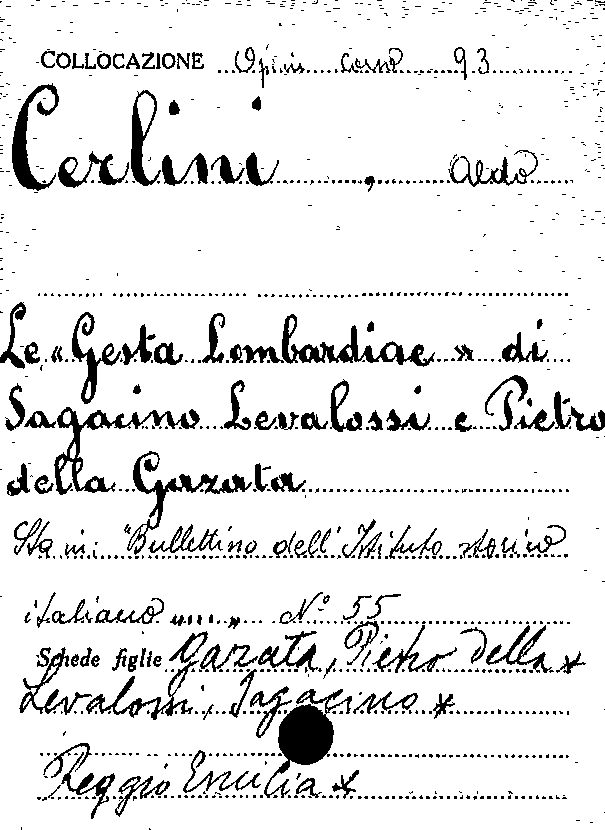 COLLOCAZIONE Op. in corso 93
Cerlini , Aldo
Le « Gesta Lombardiae » di
Sagacino Levalossi e Pietro
della Gazata
Sta in: "Bullettino dell' Istituto storico
italiano .... „ N° 55
Schede figlie Gazata, Pietro della *
Levalossi, Sagacino *
Reggio Emilia *